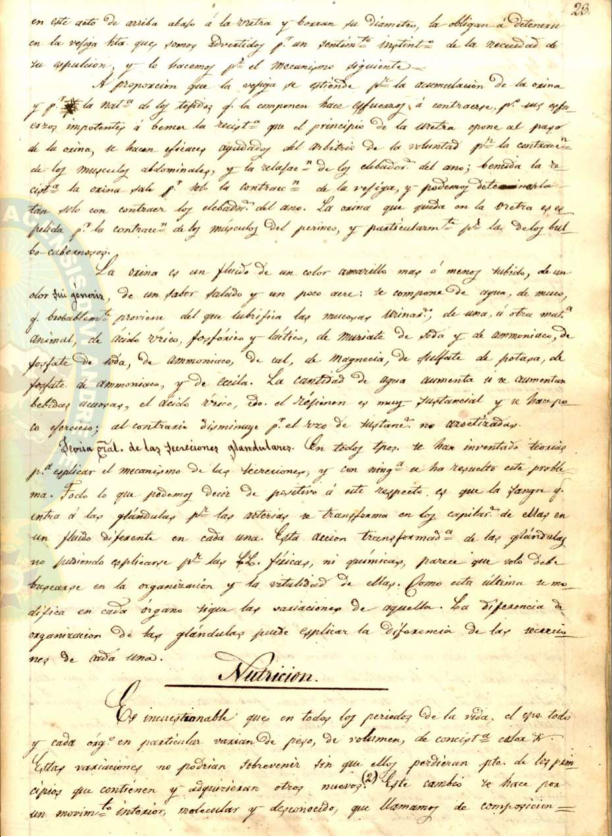 23
en este acto de arriba abajo á la vretra y borran su diametro, la obligan á detenerse
en la vejiga hta. que somos advertidos pr. un sentimto. instintvo. de la necesidad de
su espulsion, y lo hacemos pr. el mecanismo siguiente
A proporcion que la vejiga se estiende pr. la acumulacion de la orina
y pr. la natza. de los tejidos q. la componen hace esfuerzos á contraerse, pr. sus esfu-
erzos impotentes á bencer la resista. que el principio de la uretra opone al paso
de la orina, se hacen eficaces ayudados del arbitrio de la voluntad pr. la contracn.
de los musculos abdominales, y la relajacn. de los elebadors. del ano; bencida la re-
sista. la orina sale pr. solo la contraccn. de la vejiga, y podemos determinarla
tan solo con contraer los elebadors. del ano. La orina que queda en la vretra es es-
pelida pr. la contraccn. de los músculos del perineo, y particularmte. pr. las de los bul-
bo cabernosos.
La orina es un fluido de un color amarillo mas ó menos subido, de un
olor sui generis, de un sabor salado y un poco acre: se compone de agua, de muco,
q. probablemte. proviene del que lubrifica las mucosas urinars., de una, ú otra mata.
animal, de ácido vrico, fosfórico y láctico, de muriate de soda y de ammoniaco, de
fosfate de soda, de ammoniaco, de cal, de magnecia, de sulfate de potasa, de
fosfate de ammoniaco, y de cecila. La cantidad de agua aumenta si se aumentan
bebidas acuosas, el ácido vrico, cdo. el régimen es muy sustancial y se hace po-
co ejercicio; al contrario disminuye pr. el vzo de sustancs. no azoetizadas.
Teoria gral. de las secreciones glandulares. En todos tpos. se han inventado teorias
pa. esplicar el mecanismo de las secreciones, y con ninga. se ha resuelto este proble
ma. Todo lo que podemos decir de positivo á este respecto es que la sangre q.
entra á las glándulas pr. las arterias se transforma en los capilars. de ellas en
un fluido diferente en cada una. Esta accion transformada. de las glándulas
no pudiendo esplicarse pr. las LL. fisicas, ni químicas, parece que solo debe
buscarse en la organizacion y la vitalidad de ellas. Como esta última se mo-
difica en cada órgano sigue las variaciones de aquella. La diferencia de
organizacion de las glándulas puede esplicar la diferencia de las secrecio-
nes de cada una.
Nutricion.
Es incuestionable que en todos los periodos de la vida, el cpo. todo
y cada orgo. en particular varian de peso, de volumen, de concista. calor &.
Estas variaciones no podrian sobrevenir sin que ellos perdieran pte. de los prin
cipios que contienen y adquirieran otros nuevos. (2) Este cambio se hace por
un movimto. interior, molecular y desconocido, que llamamos de composicion